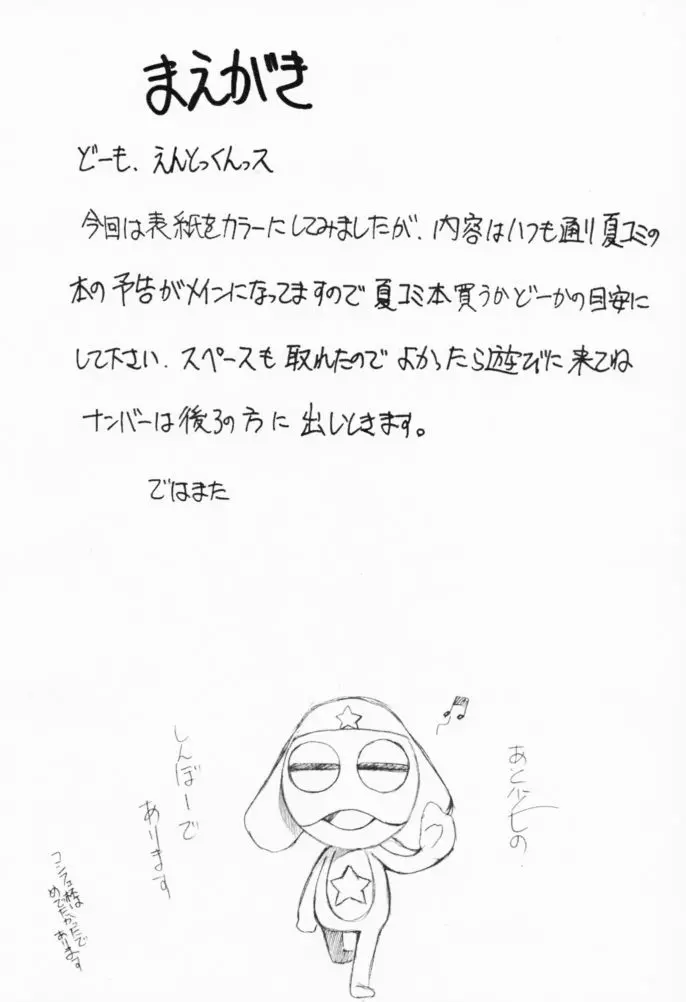 まえがき
どーも、えんとっくんっス
今回は表紙をカラーにしてみましたが、内容はいつも通り夏コミの
本の予告がメインになってますので夏コミ本買うかどーかの目安に
して下さい、スペースも取れたのでよかったら遊びに来てね
ナンバーは後ろの方に出しときます。
ではまた
あと少しの
しんぼーで
あります
めでたかったで
あります